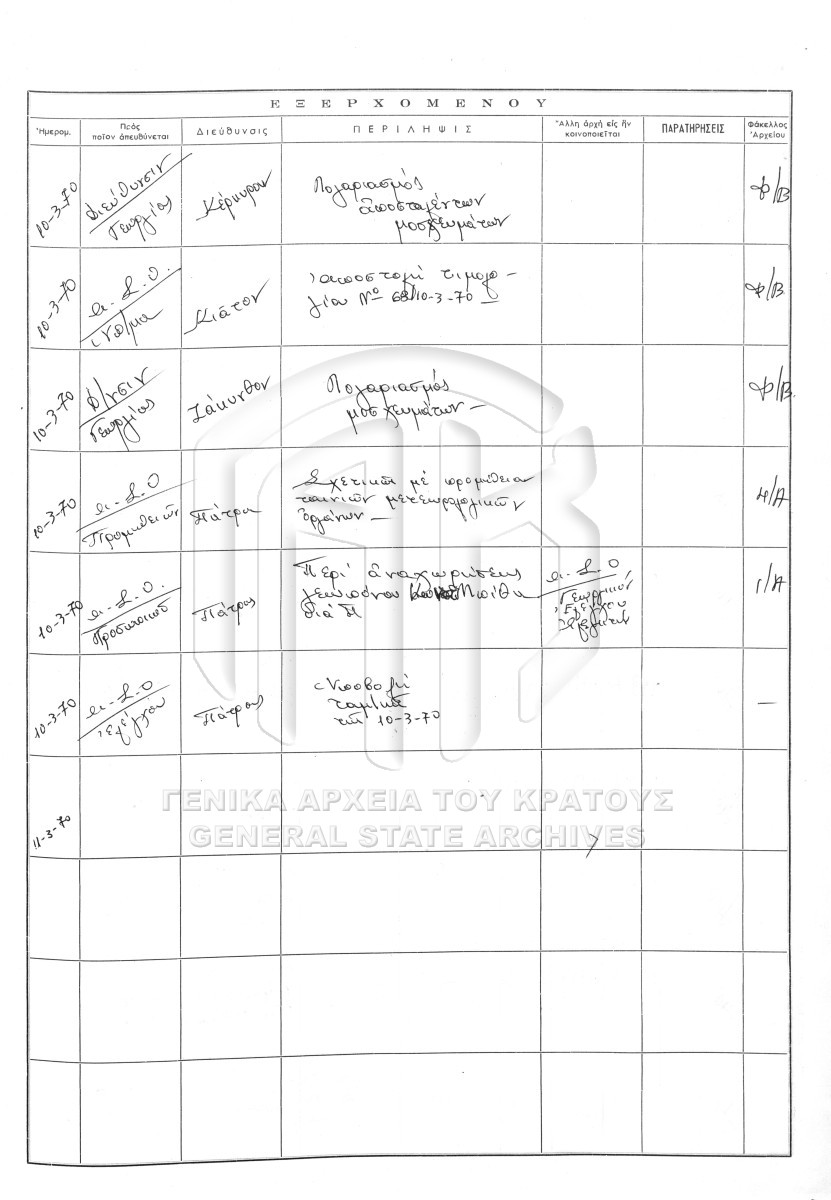 ΕΞΕΡΧΟΜΕΝΟΥ
Ἡμερομ.
Πρὸς ποῖον ἀπευθύνεται
Διεύθυνσις
ΠΕΡΙΛΗΨΙΣ
Ἄλλη ἀρχὴ εἰς ἣν κοινοποιεῖται
ΠΑΡΑΤΗΡΗΣΕΙΣ
Φάκελλος Ἀρχείου
10-3-70
Διεύθυνσιν
Γεωργίας
Κέρκυραν
Λογαριασμός
ἀποσταλέντων
μοσχευμάτων
Φ/Β
10-3-70
Α.Σ.Ο.
Κιάτον
Ἀποστολή τιμολο-
γίου Νο 68/10-3-70
Φ/Β
10-3-70
Δ/νσιν
Γεωργίας
Ζάκυνθον
Λογαριασμός
μοσχευμάτων
Φ/Β.
10-3-70
Α.Σ.Ο
Προμηθειῶν
Πάτρα
Σχετικῶς μέ προμήθεια
ταινιῶν μετεωρολογικῶν
ὀργάνων
Η/Α
10-3-70
Α.Σ.Ο.
Προσωπικοῦ
Πάτρας
Περί ἀναχωρήσεως
γεωπόνου
διά
Α.Σ.Ο
Γεωργικῶν
Ἐλέγχου
Γ/Α
10-3-70
Α.Σ.Ο
Ἐλέγχου
Πάτρας
Ὑποβολή
ταμιακ
τῆς 10-3-70
—
11-3-70
ΓΕΝΙΚΑ ΑΡΧΕΙΑ ΤΟΥ ΚΡΑΤΟΥΣ
GENERAL STATE ARCHIVES